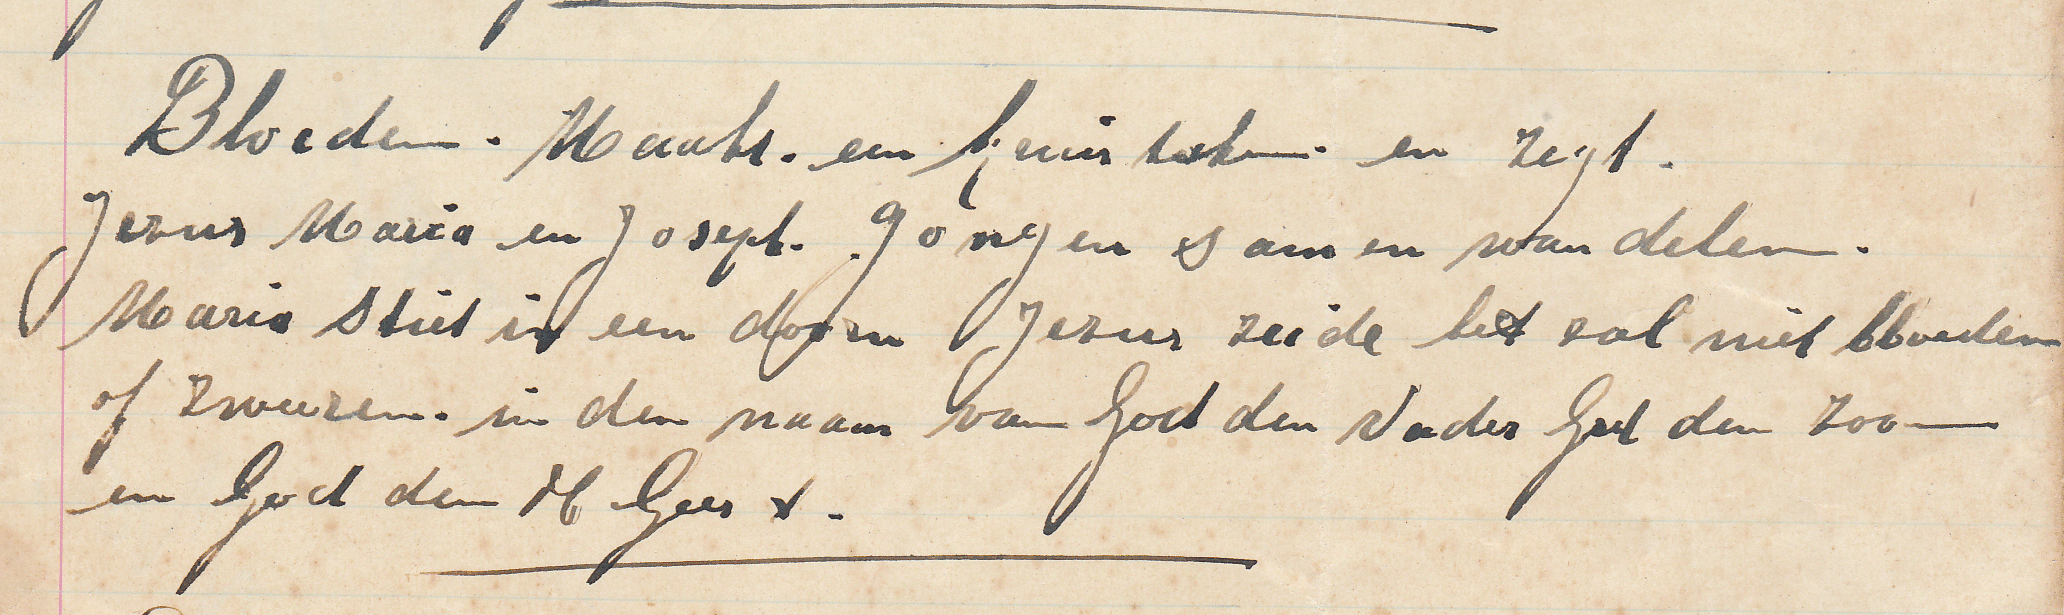 Bloeden. Maakt. een kruisteken. en zegt.
Jezus Maria en Joseph. gongen samen wandelen.
Maria stiet in een doorn Jezus zeide het zal niet bloeden
of zweeren. in den naam van God den Vader God den Zoon
en God den H Geest.